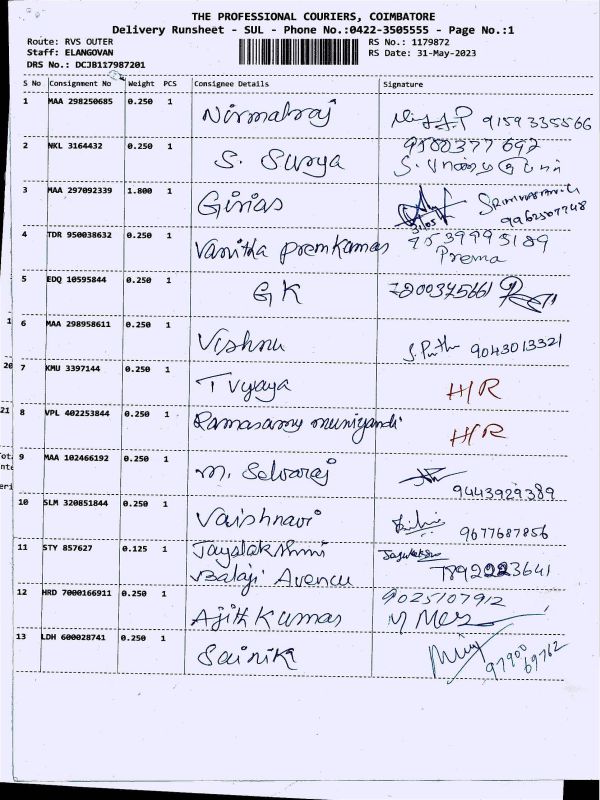 THE PROFESSIONAL COURIERS, COIMBATORE
Delivery Runsheet - SUL - Phone No.:0422-3505555 - Page No.:1
Route: RVS OUTER RS No.: 1179872
Staff: ELANGOVAN RS Date: 31-May-2023
DRS No.: DCJB117987201
S No Consignment No Weight PCS Consignee Details Signature
1 MAA 298250685 0.250 1 Nirmalraj 9159335566
2 NKL 3164432 0.250 1 S. Surya 9500377692
3 MAA 297092339 1.800 1 Girias
4 TDR 950038632 0.250 1 Vanitha Premkumar 7539995189
Prema
5 EDQ 10595844 0.250 1 GK 7200375661
6 MAA 298958611 0.250 1 Vishnu 9043013321
7 KMU 3397144 0.250 1 T Vijaya H/R
8 VPL 402253844 0.250 1 Ramasamy muniyandi H/R
9 MAA 102466192 0.250 1 M. Selvaraj
9443929389
10 SLM 320851844 0.250 1 Vaishnavi 9677687856
11 STY 857627 0.125 1 Jayalakshmi
Balaji Avenue 7892223641
12 HRD 7000166911 0.250 1 Ajith Kumar 9025107912
13 LDH 600028741 0.250 1 Sainika 97900 69762